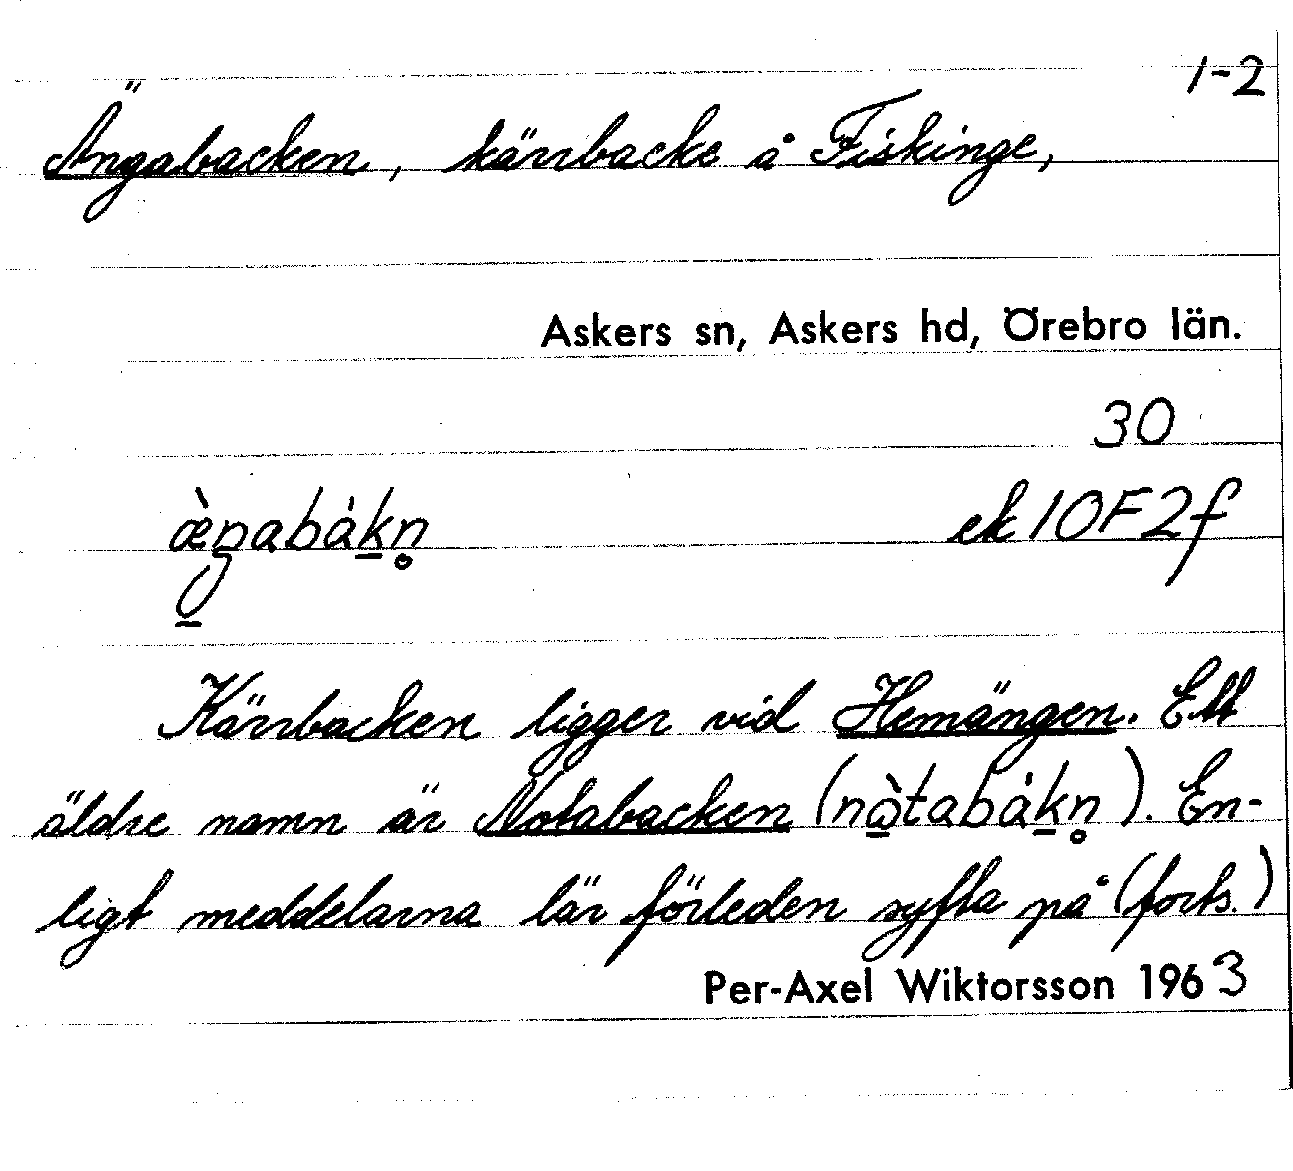 1-2
Ängabacken, kärrbacke å Fiskinge,
Askers sn, Askers hd, Örebro län.
30
æ̀ŋabák̠n̥ ek 10F2f
Kärrbacken ligger vid Hemängen. Ett
äldre namn är Notabacken (nò̠tabák̠n̥). En-
ligt meddelarna lär förleden syfta på (forts.)
Per-Axel Wiktorsson 1963